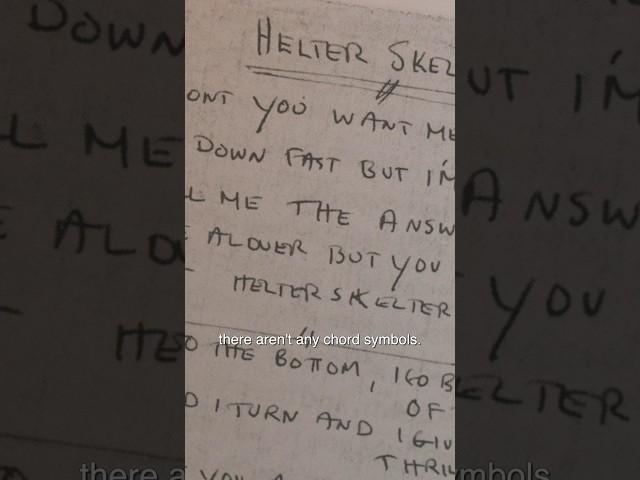 HELTER SKEL
ONT YOU WANT ME
DOWN FAST BUT I'M
L ME THE ANSW
E A LOVER BUT YOU
HELTER SKELTER
there aren't any chord symbols.
O THE BOTTOM, I GO B
OF
D I TURN AND I GIV
THRIL